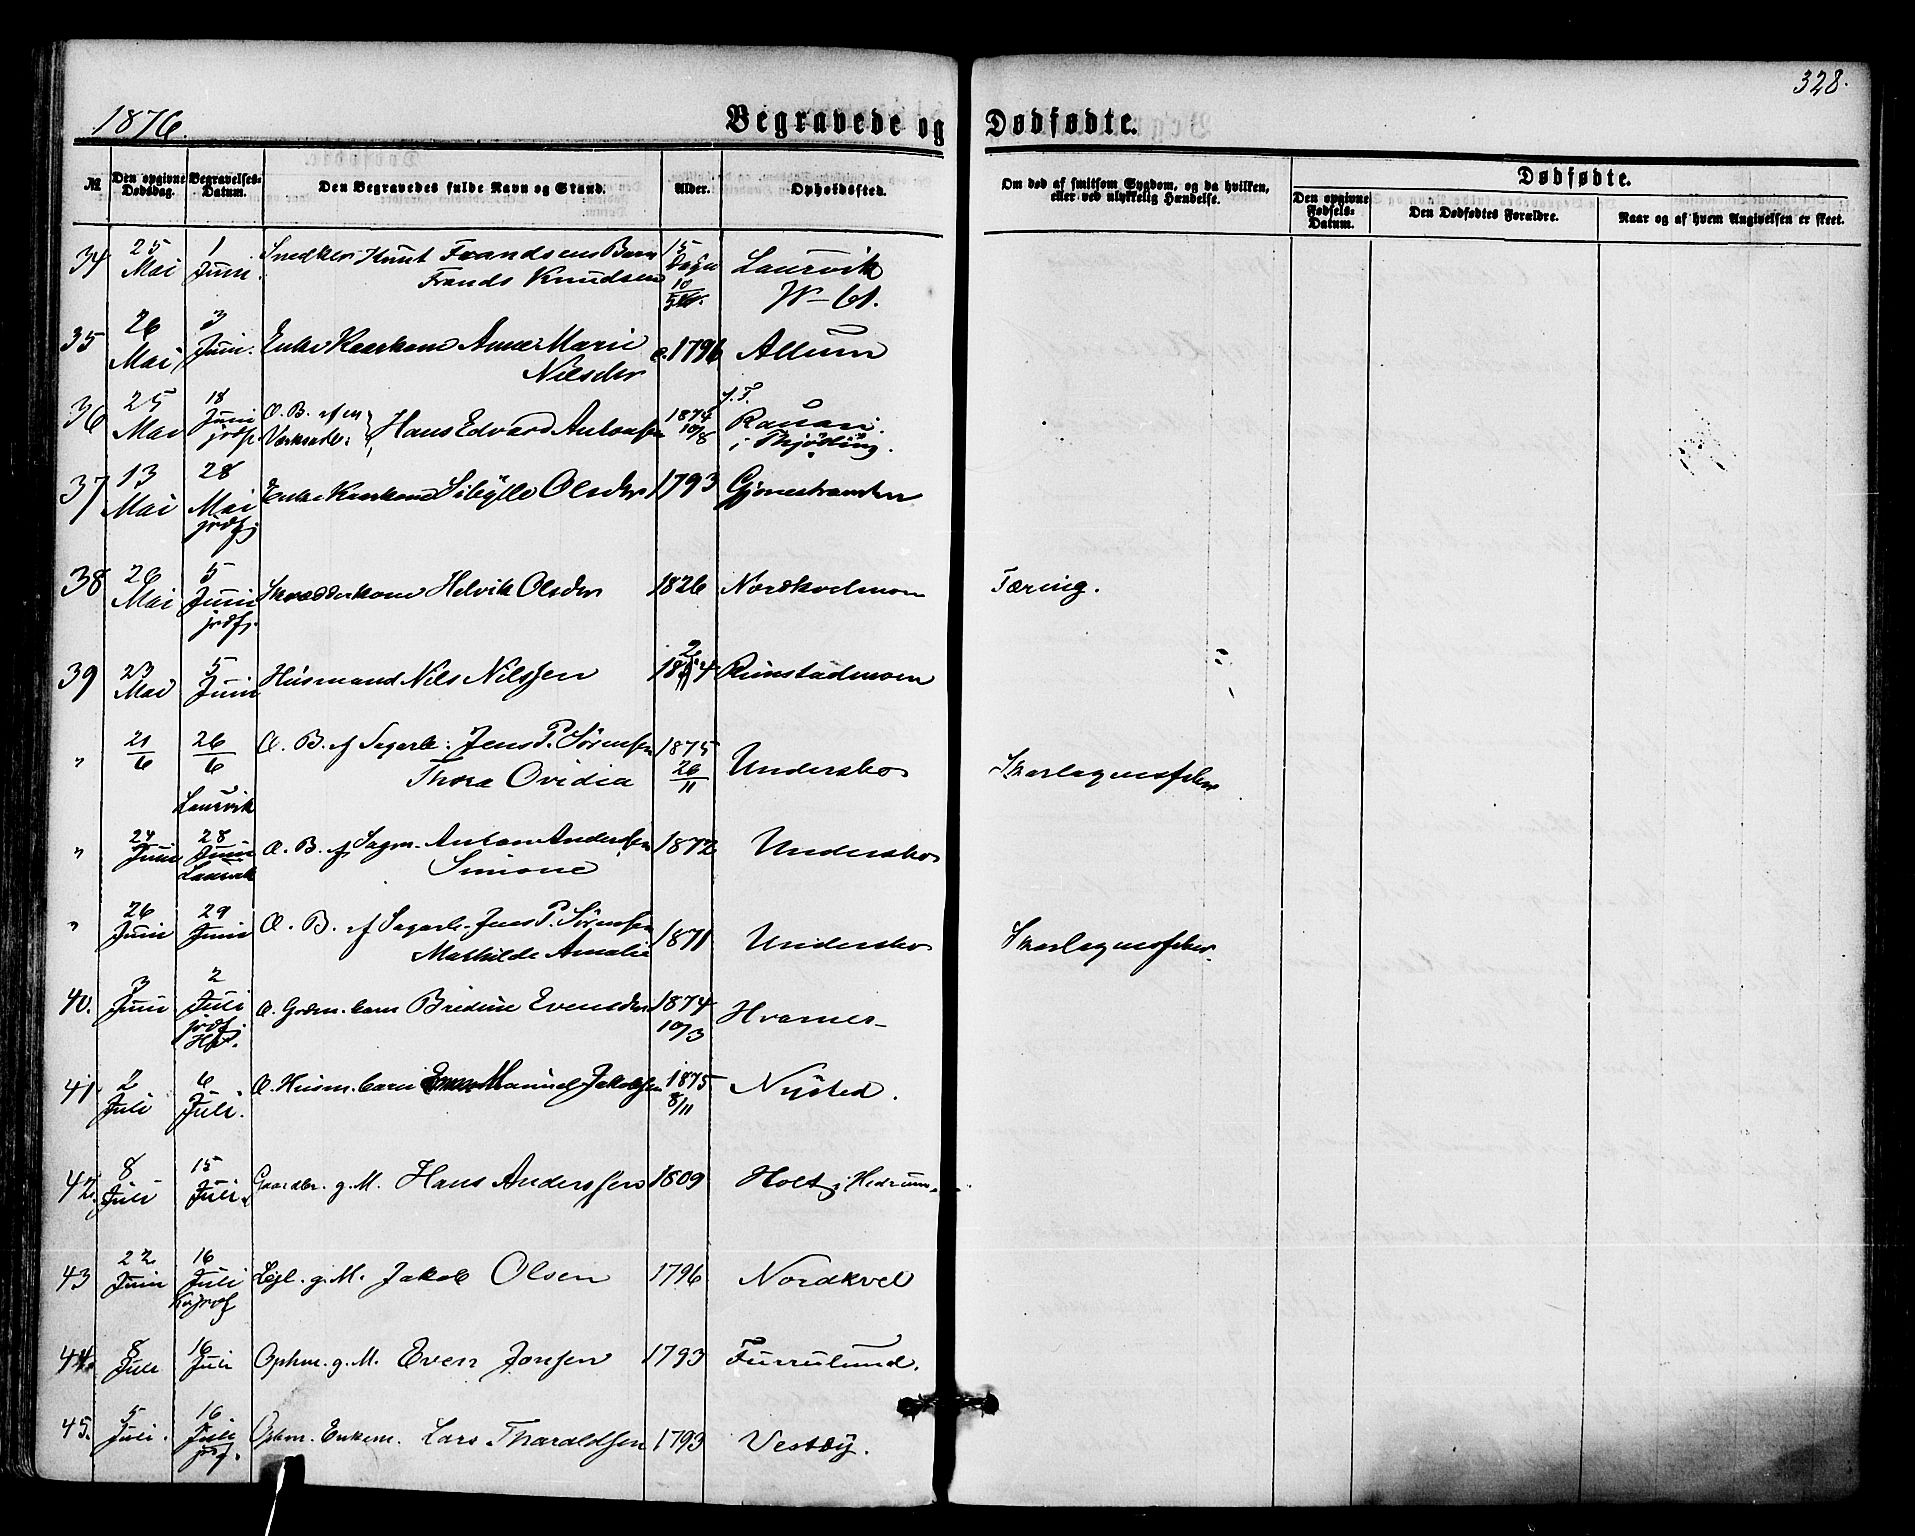 328.
1876.
Begravede og Dødfødte.
№
Den opgivne Dødsdag.
Begravelses-Datum.
Den Begravedes fulde Navn og Stand.
Alder.
Opholdssted.
Om død af smitsom Sygdom, og da hvilken, eller ved ulykkelig Hændelse.
Dødfødte.
Den opgivne Fødsels-Datum.
Den Dødfødtes Forældre.
Naar og af hvem Angivelsen er skeet.
34 25 Mai 1 Juni Snedker Knut Frandsens Barn 15 Dage Laurvik
Frands Knudsen 10/5
35 26 Mai 3 Juni. Enke Kaarkone Anne Marie c. 1796 Allum
Nilsdtr
36 25 Mai 18 Juni jrdf Æ. B. af en Hans Edvard Antonsen 1874 10/8 Rauan
i Thjødling.
37 13 Mai 28 Mai jrdf. Enke Kaarkone Sibylle Olsdtr 1793 Gjonestranden
38 26 Mai 5 Juni jrdf. Skrædderkone Helvik Olsdtr 1826 Nordkvelmoen Tæring.
39 23 Mai 5 Juni Husmand Nils Nilssen Rimstadmoen
" 21/6 26/6 Laurvik Æ. B. af Sagarb: Jens P. Sørensen 1875 26/11 Undersbo Skarlagensfeber
Thora Ovidia
" 24 Juni 28 Juni Laurvik Æ. B. af Sagm. Anton Anderssen 1872 Undersbo
Simone
" 26 Juni 29 Juni Æ. B. af Sagarb. Jens P. Sørensen 1871 Undersbo Skarlagensfeber.
Mathilde Amalie
40. 3 Juni 2 Juli jrdf. Æ. Grdm. barn Bredine Evensdtr 1874 10/3 Hvarnes
41 2 Juli 6 Juli. Æ. Husm. barn Manuel Jakobsen 1875 8/11 Nysted.
42. 8 Juli 15 Juli Gaardbr. g. M. Hans Anderssen 1809 Holt i Hedrum
43 22 Juni 16 Juli g. M. Jakob Olsen 1796 Nordkvel
44. 8 Juli 16 Juli Ophm. g. M. Even Jonsen 1793 Furrulund.
45. 5 Juli. 16 Juli jrdf. Ophm. Enkem. Lars Tharaldsen 1793 Vestby.